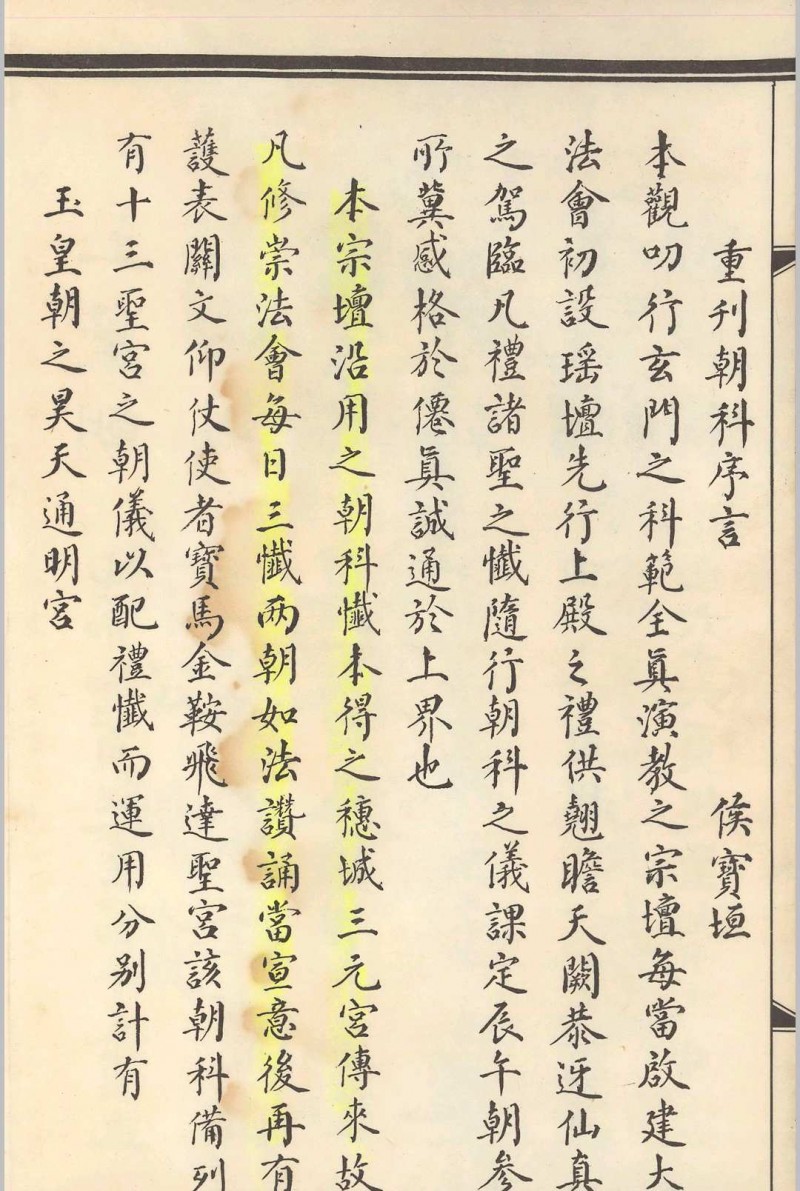 重刊朝科序言 侯寶垣
本觀叨行玄門之科範全眞演教之宗壇每當啟建大
法會初設瑶壇先行上殿之禮供翹瞻天闕恭迓仙真
之駕臨凡禮諸聖之懺隨行朝科之儀課定辰午朝參
所冀感格於僊眞誠通於上界也
本宗壇沿用之朝科懺本得之穗城三元宮傳來故
凡修崇法會每日三懺两朝如法讚誦當宣意後再有
護表關文仰仗使者寶馬金鞍飛達聖宮該朝科備列
有十三聖宮之朝儀以配禮懺而運用分别計有
玉皇朝之昊天通明宮